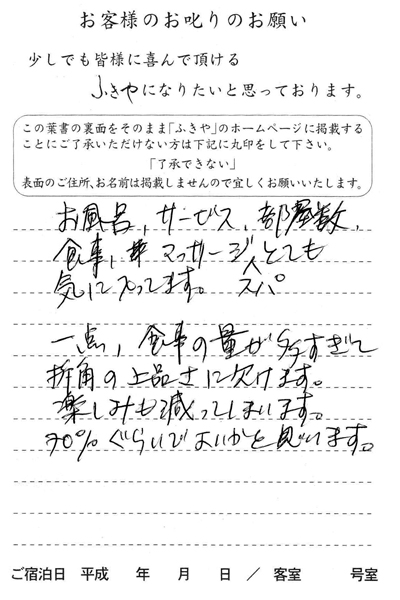 お客様のお叱りのお願い
少しでも皆様に喜んで頂ける
ふきやになりたいと思っております。
この葉書の裏面をそのまま「ふきや」のホームページに掲載する
ことにご了承いただけない方は下記に丸印をして下さい。
「了承できない」
表面のご住所、お名前は掲載しませんので宜しくお願いいたします。
お風呂，サービス，部屋数，
食事，マッサージ，とても
スパ
気に入ってます。
一点，食事の量が多すぎて
折角の上品さに欠けます。
楽しみも減ってしまいます。
70%ぐらいでよいかと思います。
ご宿泊日 平成 年 月 日 ／ 客室 号室